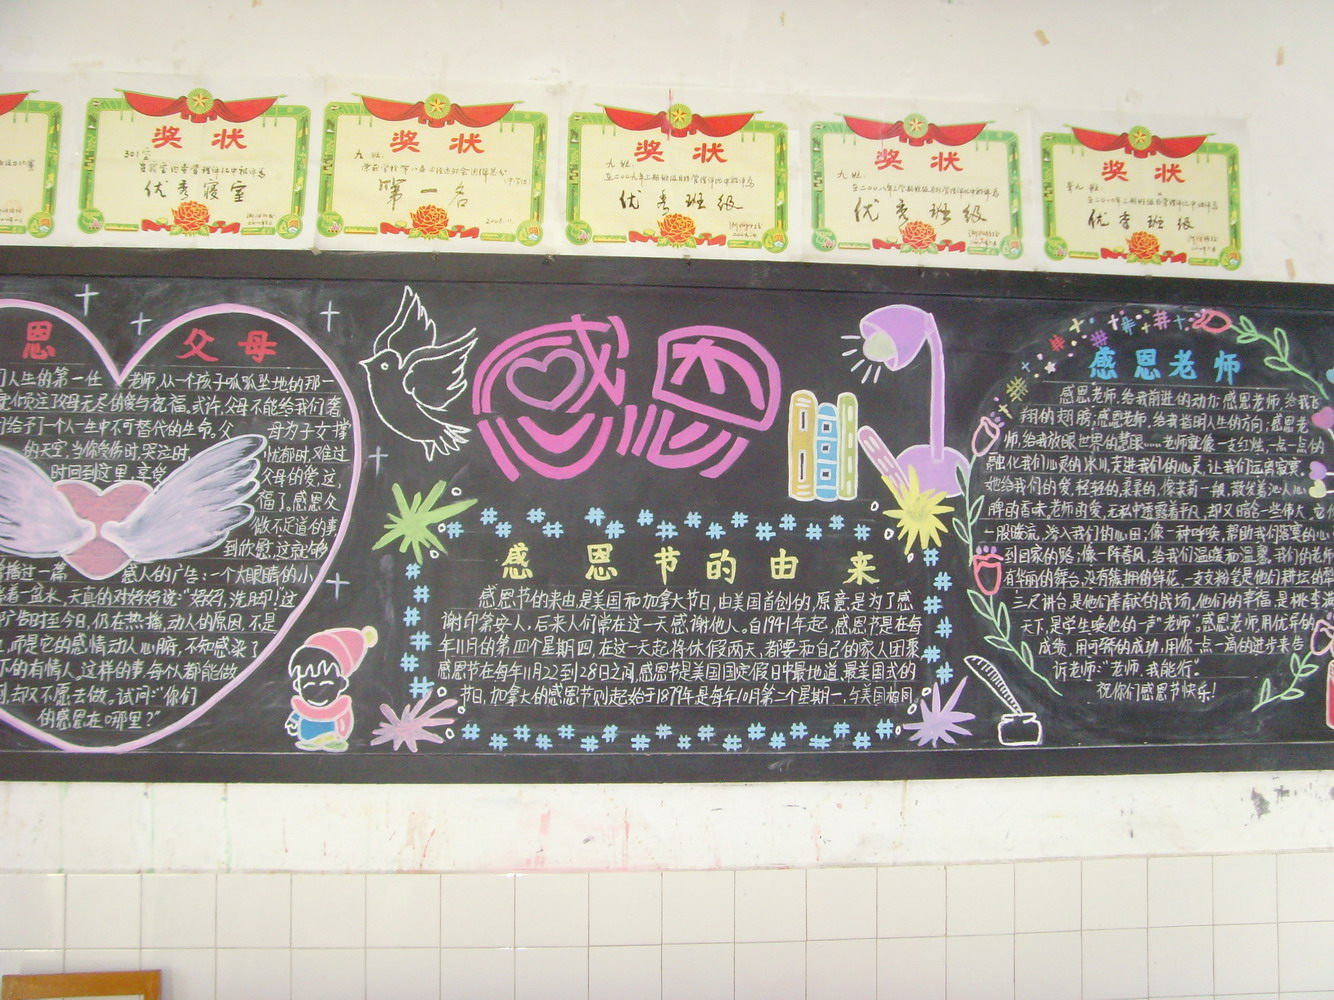 奖状
301室
优秀寝室
奖状
九班:
第一名
2008.11
奖状
九班:
优秀班级
奖状
九班:
优秀班级
奖状
优秀班级
恩 父母
人生的第一任 老师,从一个孩子呱呱坠地的那一
父母无尽的爱与祝福,或许,父母不能给我们奢
给予了一个人一生中不可替代的生命。父 母为子女撑
的天空,当你受伤时,哭泣时 忧郁时,难过
时回到这里,享受 父母的爱,这,
福了。感恩父
做不足道的事,
到欣慰,这就够
播过一篇 感人的广告:一个大眼睛的小
着一盆水,天真的对妈妈说:“妈妈,洗脚!”这
广告时至今日,仍在热播,动人的原因,不是
,而是它的感情动人心脾,不知感染了
下的有情人,这样的事,每个人都能做
,却又不愿去做。试问:“你们
的感恩在哪里?”
感恩
感恩节的由来
感恩节的来由,是美国和加拿大节日,由美国首创的,原意是为了感
谢印第安人,后来人们常在这一天感谢他人。自1941年起,感恩节是在每
年11月的第四个星期四,在这一天起将休假两天,都要和自己的家人团聚,
感恩节在每年11月22到28日之间,感恩节是美国国定假日中最地道,最美国式的
节日,加拿大的感恩节则起始于1879年是每年10月第二个星期一,与美国相同
感恩老师
感恩老师,给我前进的动力;感恩老师,给我飞
翔的翅膀;感恩老师,给我指明人生的方向;感恩老
师,给我放眼世界的慧眼……老师就像一支红烛,一点一点的
融化我们心灵的冰川,走进我们的心灵,让我们远离寂寞。
她给我们的爱,轻轻的,柔柔的,像茉莉一般,散发着沁人心
脾的香味,老师的爱,无私中透露着平凡,却又暗含一些伟大,它像
一股暖流,渗入我们的心田;像一种呼唤,帮助我们落寞的心
到回家的路;像一阵春风,给我们温暖和温馨,我们的老师
有华丽的舞台,没有簇拥的鲜花,一支支粉笔是他们耕耘的犁
三尺讲台是他们奉献的战场,他们的幸福,是桃李满
天下,是学生唤他的一声“老师”。感恩老师用优异的
成绩,用可骄的成功,用你一点一滴的进步来告
诉老师:“老师,我能行”。
祝你们感恩节快乐!